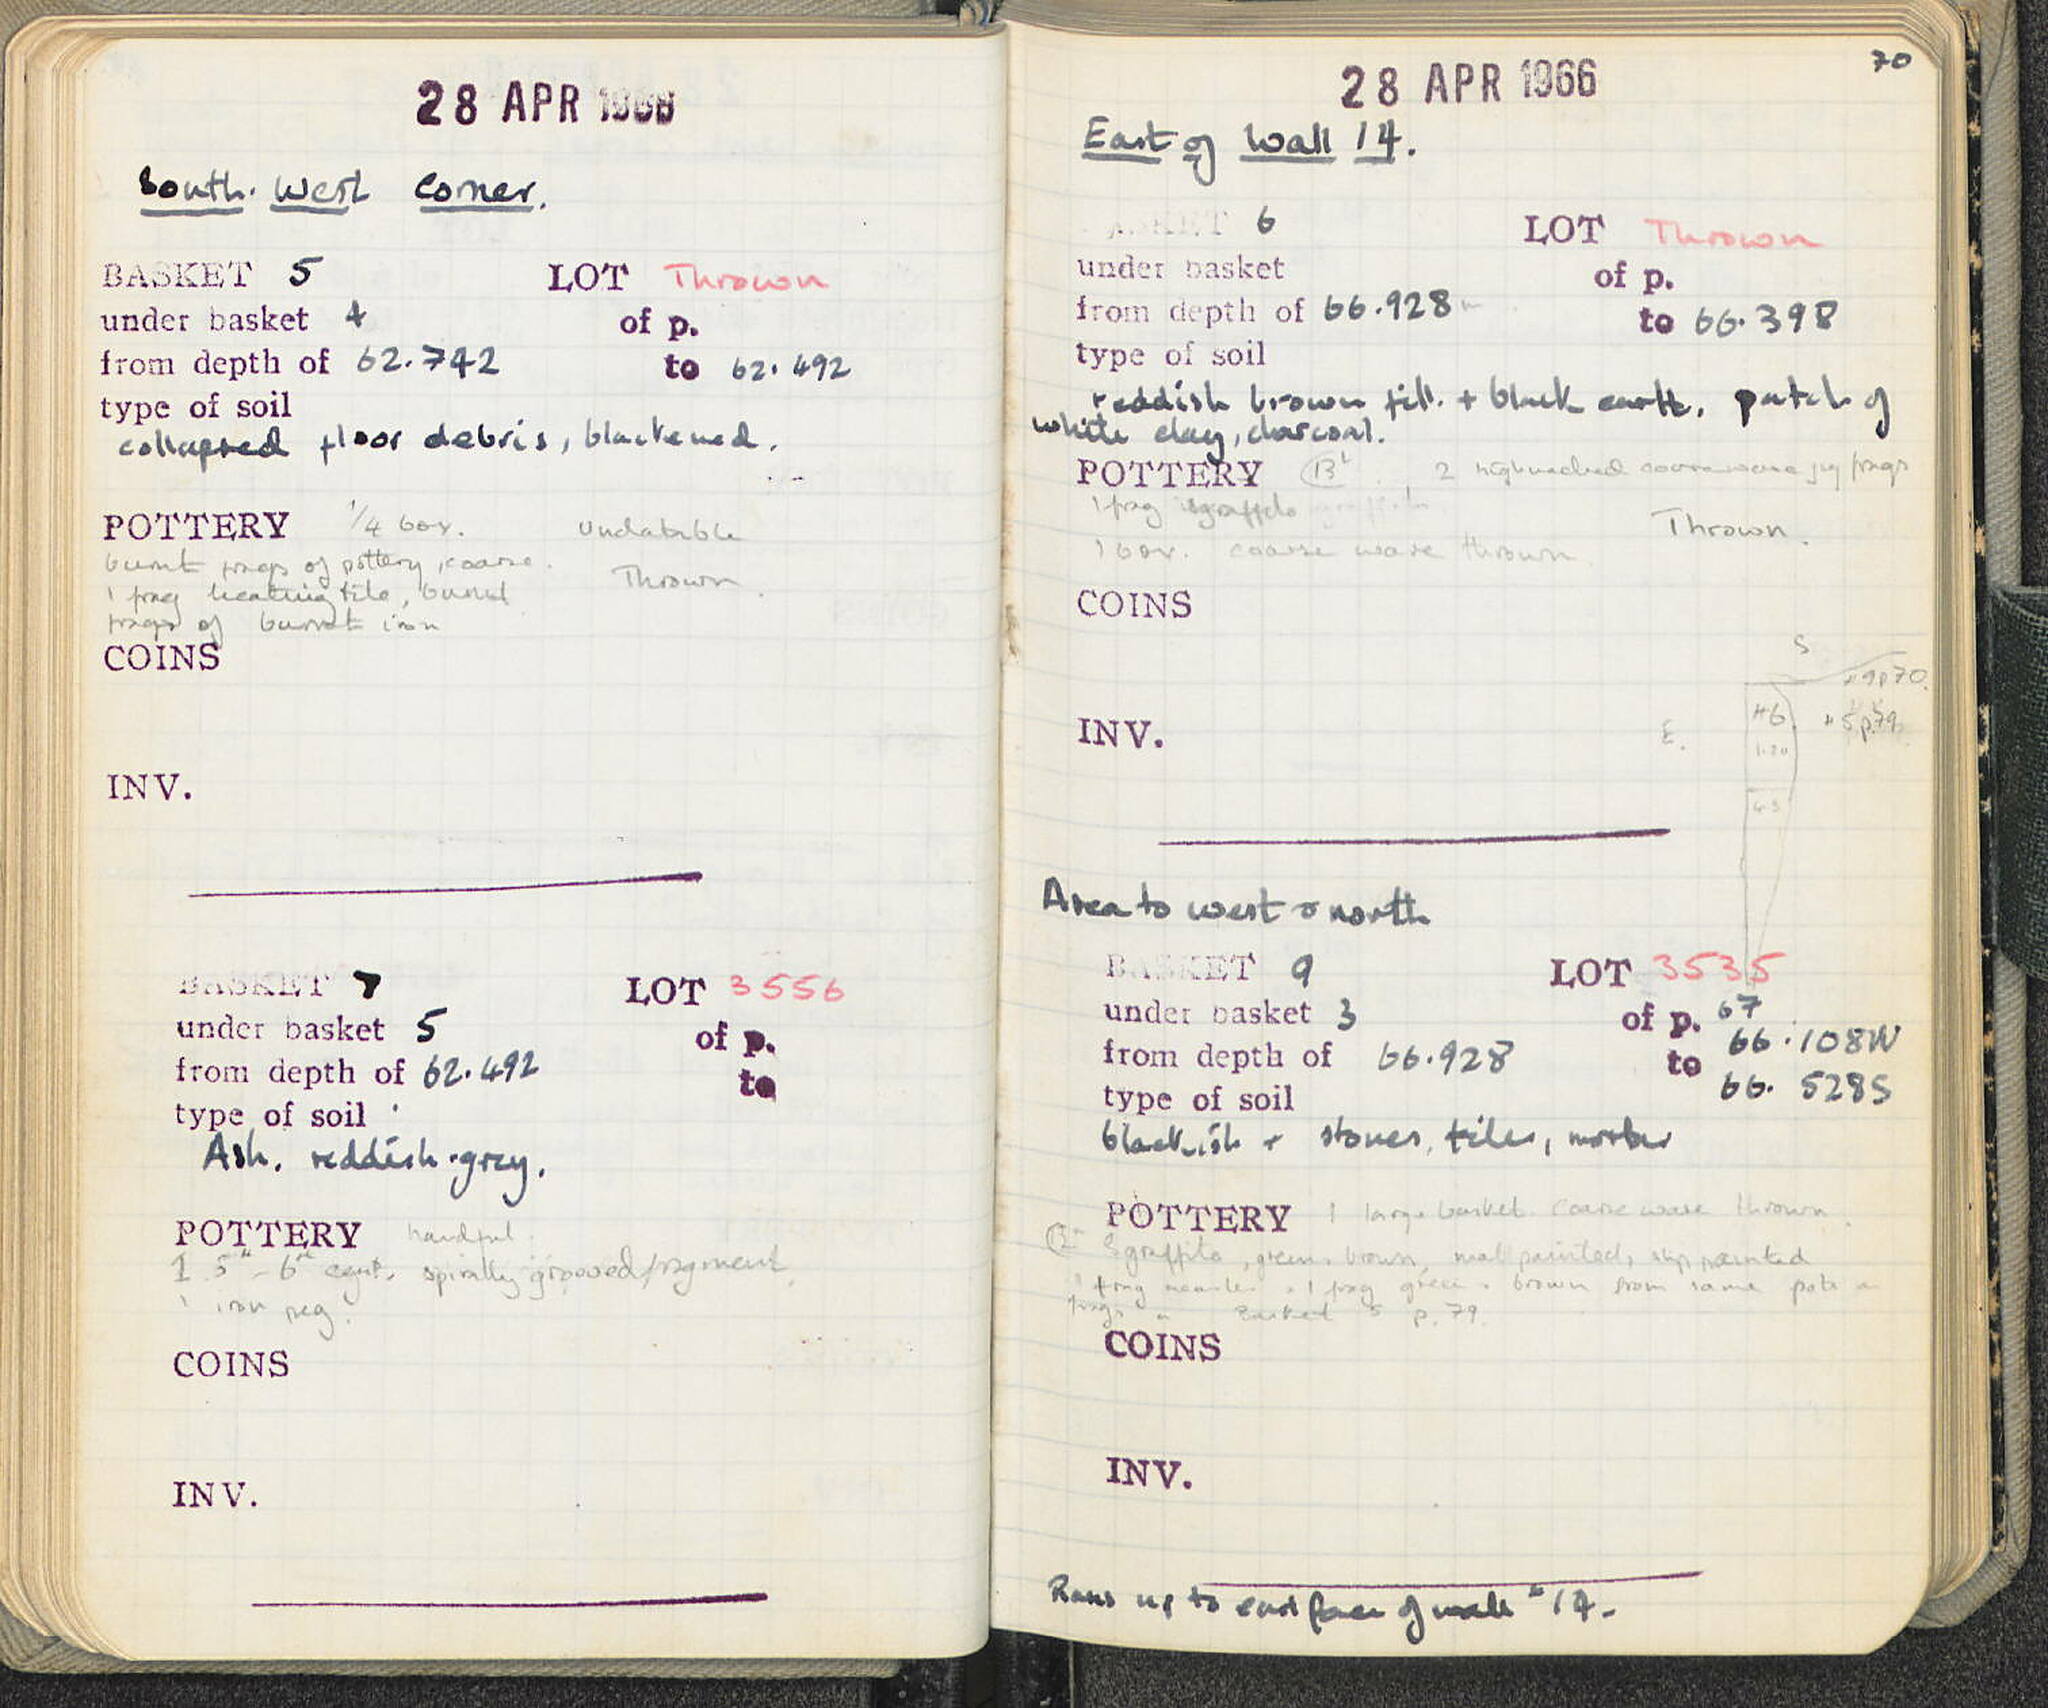 28 APR 1966
South. West Corner.
BASKET 5 LOT Thrown
under basket 4 of p.
from depth of 62.742 to 62.492
type of soil
collapsed floor debris, blackened.
POTTERY 1/4 box. undatable
burnt frags of pottery, coarse. Thrown.
1 frag heating tile, burnt
frags of burnt iron
COINS
INV.
BASKET 7 LOT 3556
under basket 5 of p.
from depth of 62.492 to
type of soil
Ash, reddish-grey.
POTTERY handful.
1 5th - 6th cent. spirally grooved fragment
1 iron peg.
COINS
INV.
70
28 APR 1966
East of Wall 14.
BASKET 6 LOT Thrown
under basket of p.
from depth of 66.928 to 66.398
type of soil
reddish brown fill. + black earth, patch of
white clay, charcoal.
POTTERY 2 highnecked coarseware jug frags
1 frag sgraffito Thrown.
1 box. coarse ware thrown
COINS
S
9 p 70.
INV. E. #6 5 p. 79
1.20
Area to west & north
BASKET 9 LOT 3535
under basket 3 of p. 67
from depth of 66.928 to 66.108W
type of soil 66.528S
blackish + stones, tiles, mortar
POTTERY 1 large basket coarse ware thrown.
Sgraffito, green & brown, mat painted, slip painted
1 frag 1 frag green & brown from same pots as
frags in Basket 5 p. 79.
COINS
INV.
Runs up to east face of wall #14.